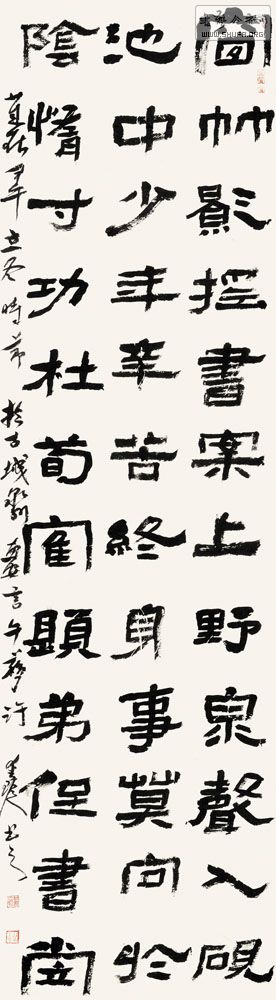 窗竹影搖書案上野泉聲入硯
池中少年辛苦終身事莫向光
陰惰寸功杜荀寉題弟侄書堂
立冬時節於古城
言午
許
書之
WWW.SHUFA.ORG